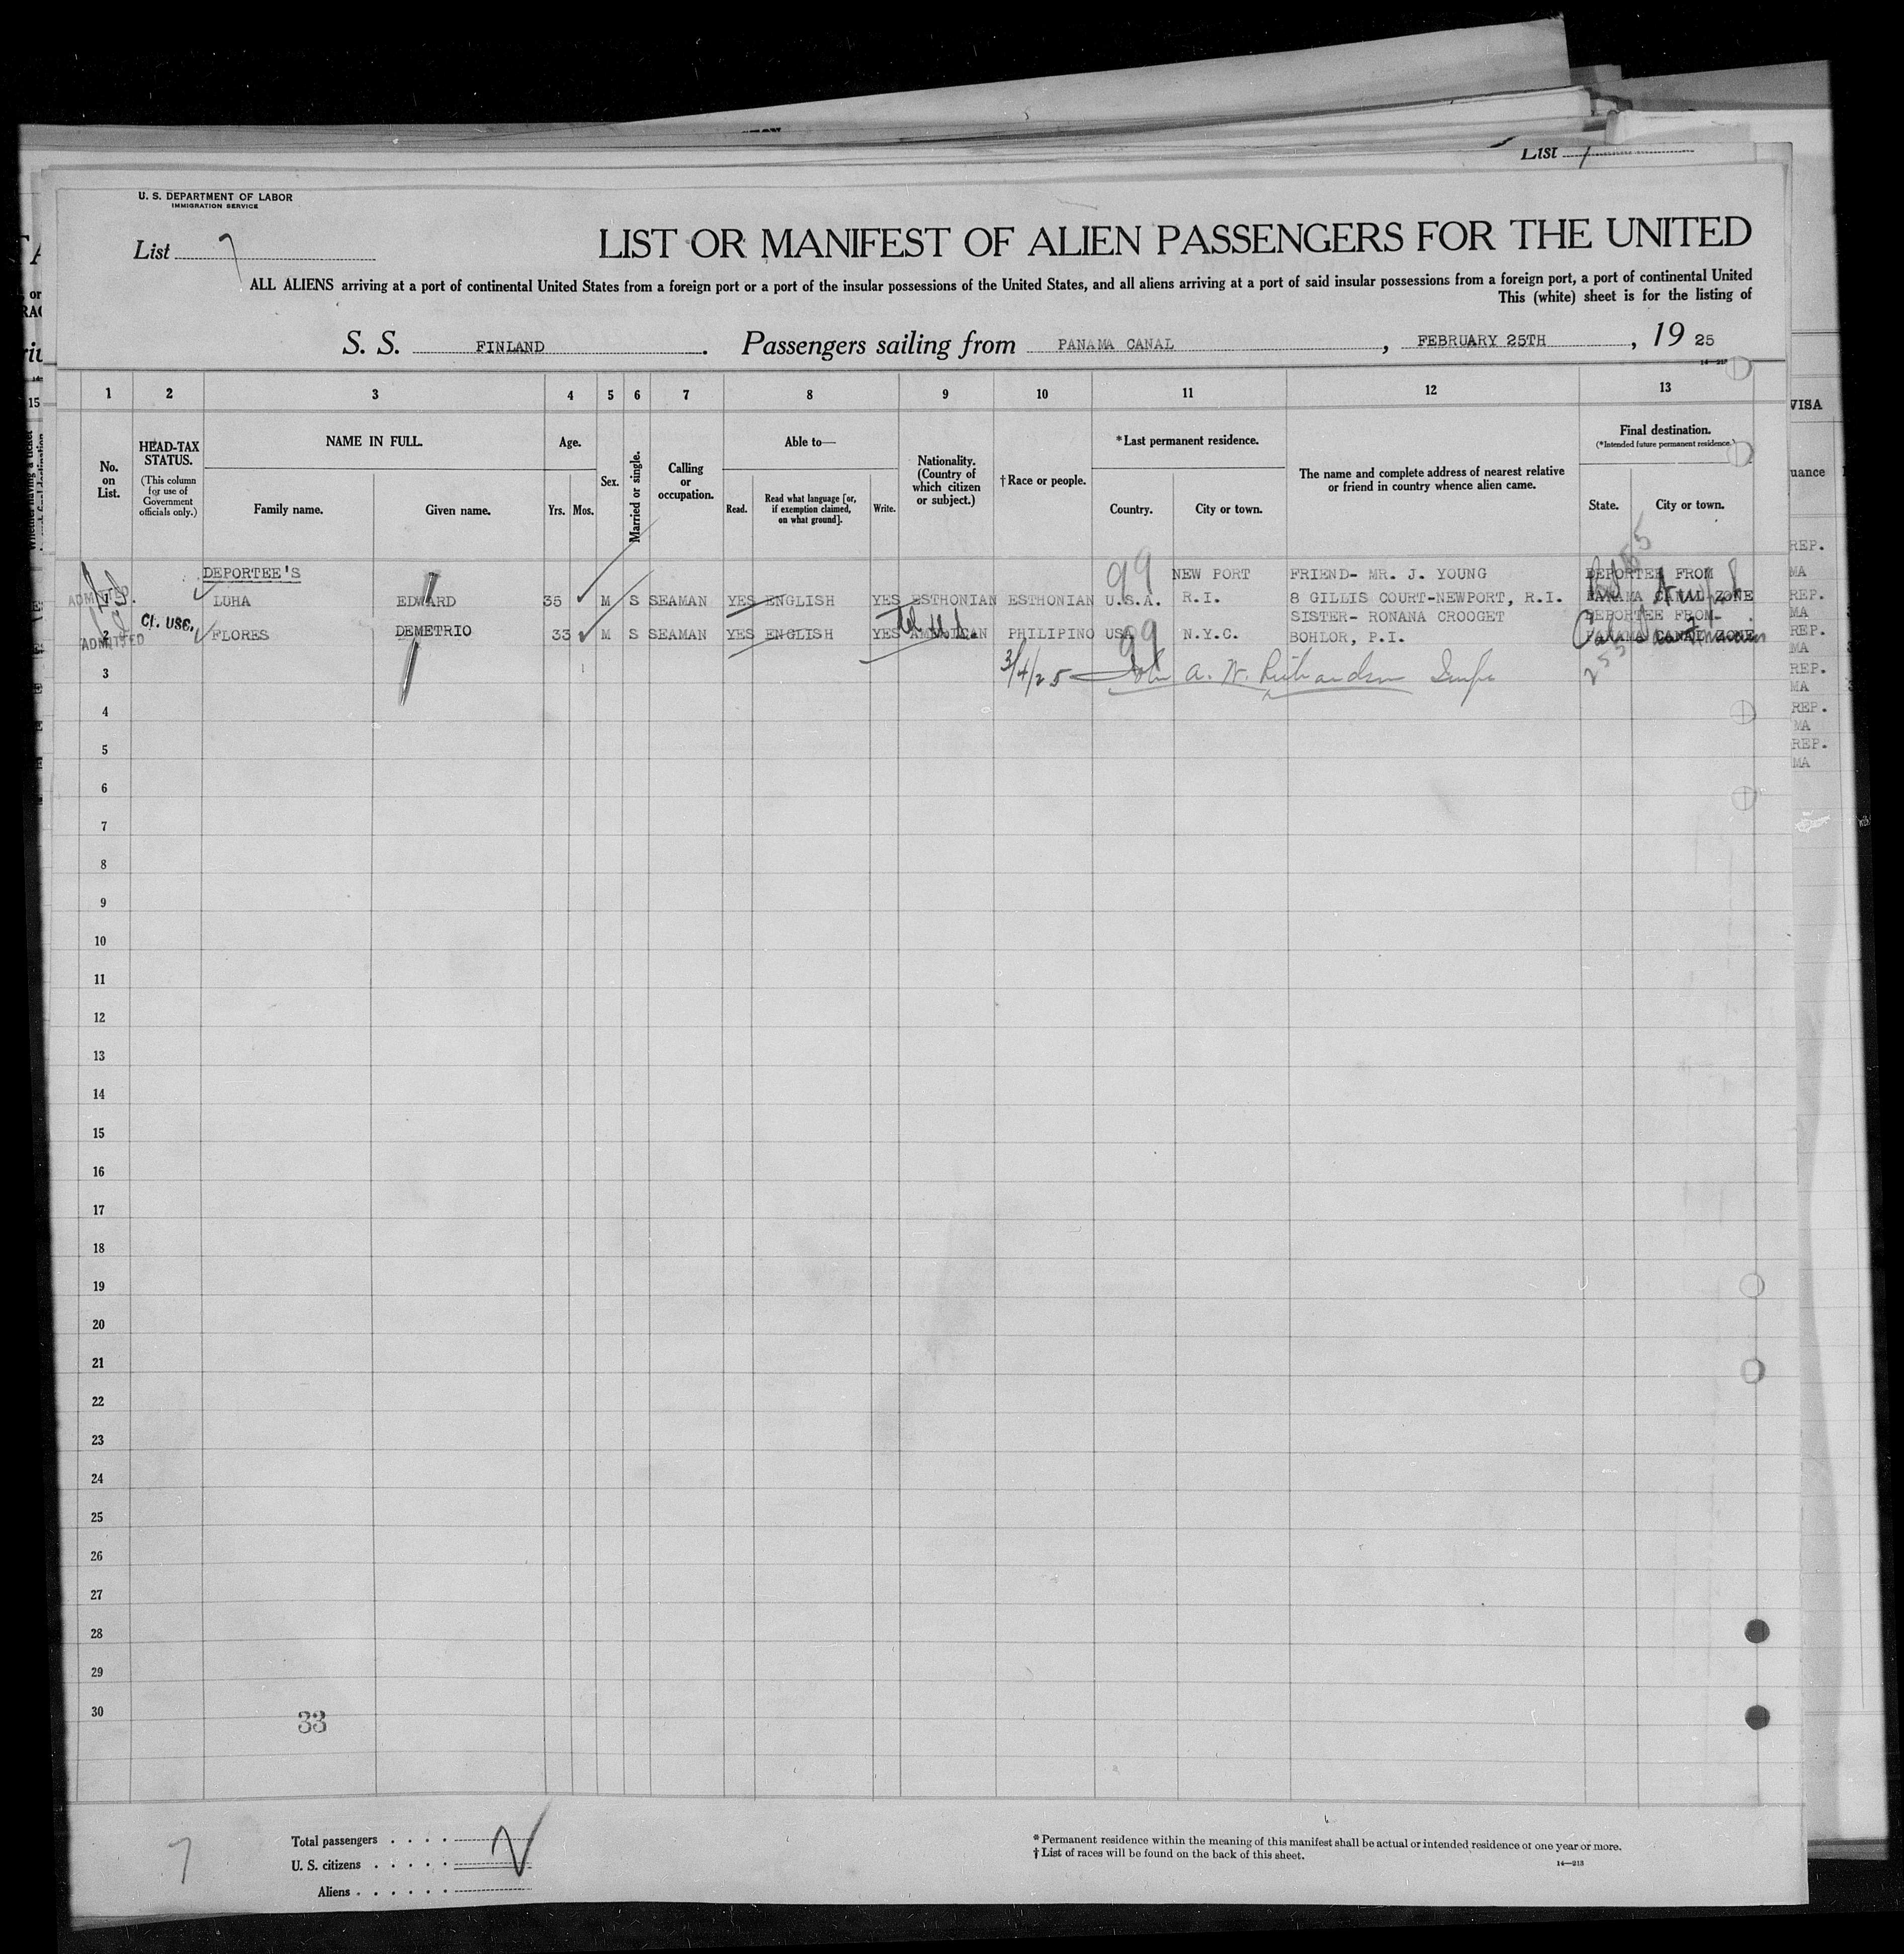 List 7
U. S. DEPARTMENT OF LABOR
IMMIGRATION SERVICE
List 7
LIST OR MANIFEST OF ALIEN PASSENGERS FOR THE UNITED
ALL ALIENS arriving at a port of continental United States from a foreign port or a port of the insular possessions of the United States, and all aliens arriving at a port of said insular possessions from a foreign port, a port of continental United
This (white) sheet is for the listing of
S. S. FINLAND. Passengers sailing from PANAMA CANAL, FEBRUARY 25TH, 19 25
1 2 3 4 5 6 7 8 9 10 11 12 13
No. on List.
HEAD-TAX STATUS.
(This column for use of Government officials only.)
NAME IN FULL.
Family name. Given name.
Age.
Yrs. Mos.
Sex.
Married or single.
Calling or occupation.
Able to—
Read. Read what language [or, if exemption claimed, on what ground]. Write.
Nationality. (Country of which citizen or subject.)
†Race or people.
*Last permanent residence.
Country. City or town.
The name and complete address of nearest relative or friend in country whence alien came.
Final destination.
(*Intended future permanent residence.)
State. City or town.
DEPORTEE'S 99 NEW PORT FRIEND- MR. J. YOUNG DEPORTEE FROM
ADMITTED 1 LUHA EDWARD 35 M S SEAMAN YES ENGLISH YES ESTHONIAN ESTHONIAN U.S.A. R.I. 8 GILLIS COURT-NEWPORT, R.I. PANAMA CANAL ZONE
SISTER- RONANA CROOGET DEPORTEE FROM
ADMITTED 2 Cl. USC. FLORES DEMETRIO 33 M S SEAMAN YES ENGLISH YES AMERICAN PHILIPINO USA 99 N.Y.C. BOHLOR, P.I. PANAMA CANAL ZONE
3 3/4/25 John A. W. Richardson Insp
4
5
6
7
8
9
10
11
12
13
14
15
16
17
18
19
20
21
22
23
24
25
26
27
28
29
30
33
7
Total passengers
U. S. citizens
Aliens
* Permanent residence within the meaning of this manifest shall be actual or intended residence of one year or more.
† List of races will be found on the back of this sheet.
14—213
VISA
uance
REP.
MA
REP.
MA
REP.
MA
REP.
MA
REP.
MA
REP.
MA